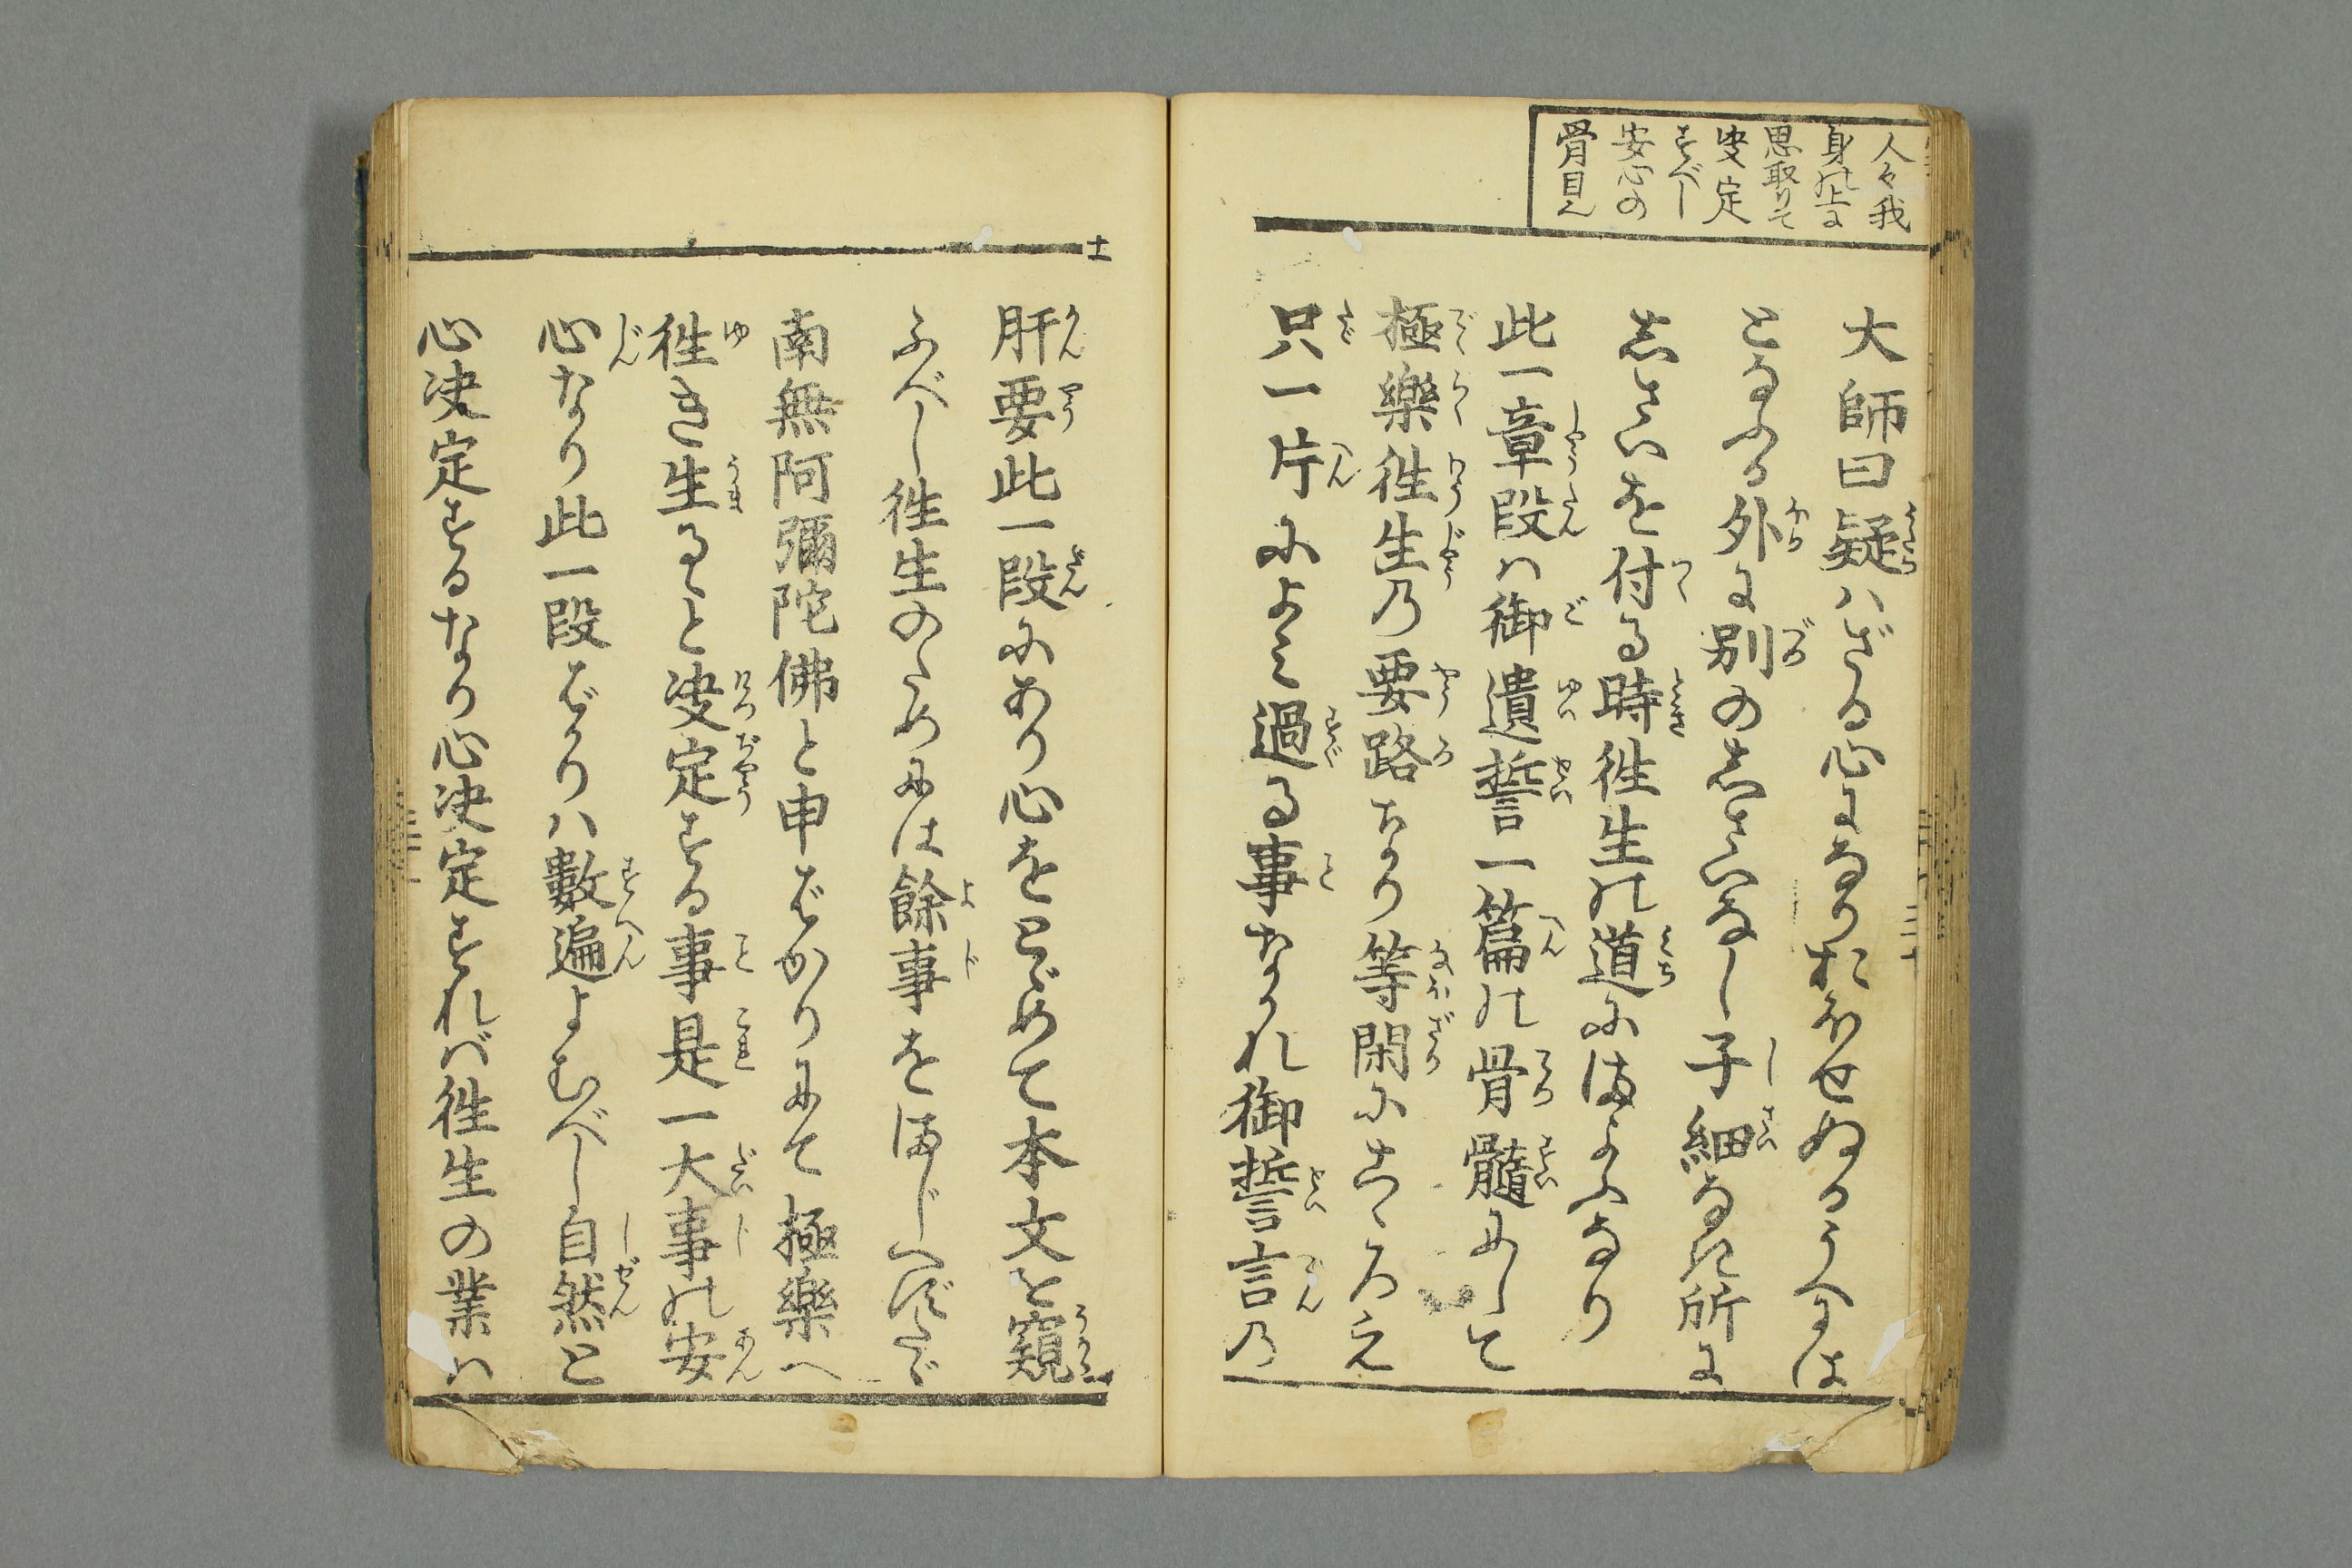 人々我
身の上に
思取りて
决定
すべし
安心の
骨目也
大師曰疑ハざる心になりおふせぬるうへには
となふる外に別のしさいなし子細なき所に
しさいを付る時徃生の道にまよふなり
此一章段ハ御遺誓一篇の骨髓にして
極樂徃生乃要路なり等閑にこゝろえ
只一片によみ過る事なかれ御誓言乃
十一
肝要此一段にあり心をとゞめて本文を窺
ふべし徃生のためには餘事をまじへずたゞ
南無阿彌陀佛と申ばかりにて極樂へ
徃き生るゝと决定する事是一大事の安
心なり此一段ばかりハ數遍よむべし自然と
心决定するなり心决定すれば徃生の業ハ